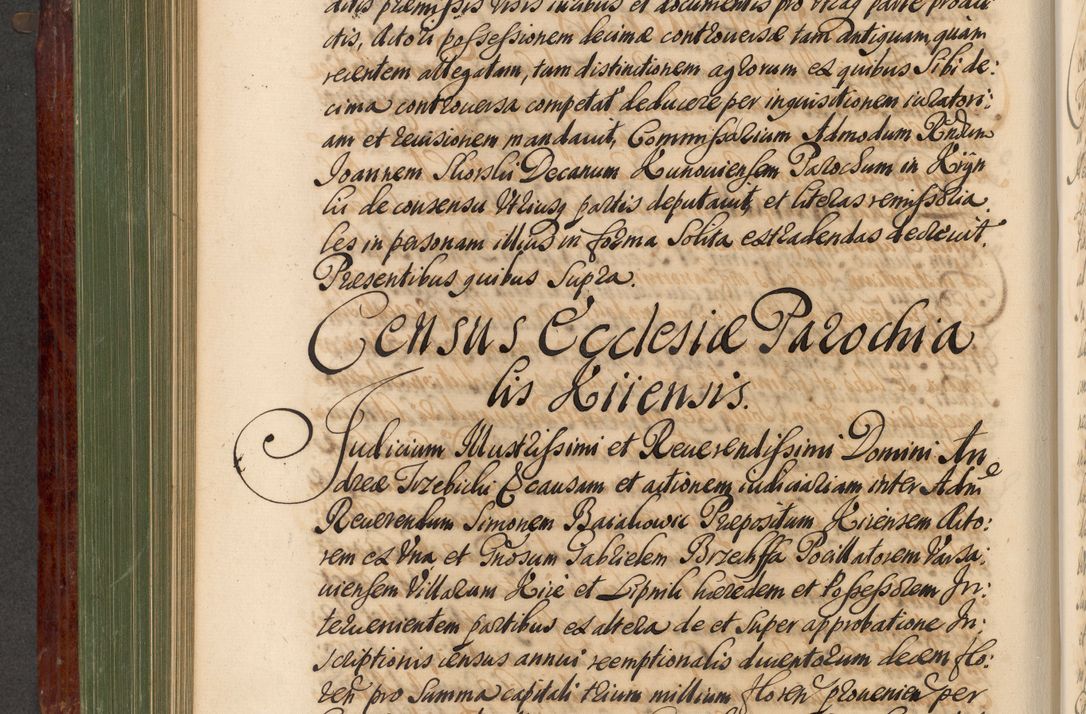 ditis præmissis visis iuribus et documentis pro utraq parte produ
ctis, Actori possessionem decimæ controversæ tam antiquam, quam
recentem allegatam, tum distinctionem agrorum ex quibus Sibi de:
cima controuersa competat deducere per inquisitionem iuratori:
am et reuisionem mandauit, Commissarium Admodum Rndum
Joannem Skorski Decanum Kunouiensem Parochum in Kryn
ki de consensu Utriusq partis deputauit, et literas remissoria
les in personam illius in forma Solita extradendas decreuit.
Præsentibus quibus Supra.
Census Ecclesiæ Parochia
lis Kiiensis.
Judicium Illustrissimi et Reuerendissimi Domini An
dreæ Trzebicki E causam et actionem iudiciariam inter Adm
Reuerendum Simonem Praepositum Kiiensem Acto:
rem ex Una et Gnosum Gabrielem Brzechffa Pocillatorem Varsa:
uiensem Villarum Kiie et Lipnik hæredem et Possessorem In:
teruenientem partibus ex altera de et Super approbatione In:
scriptionis census annui reemptionalis ducentorum decem flo:
ren pro Summa capitali trium millium floren prouenien per